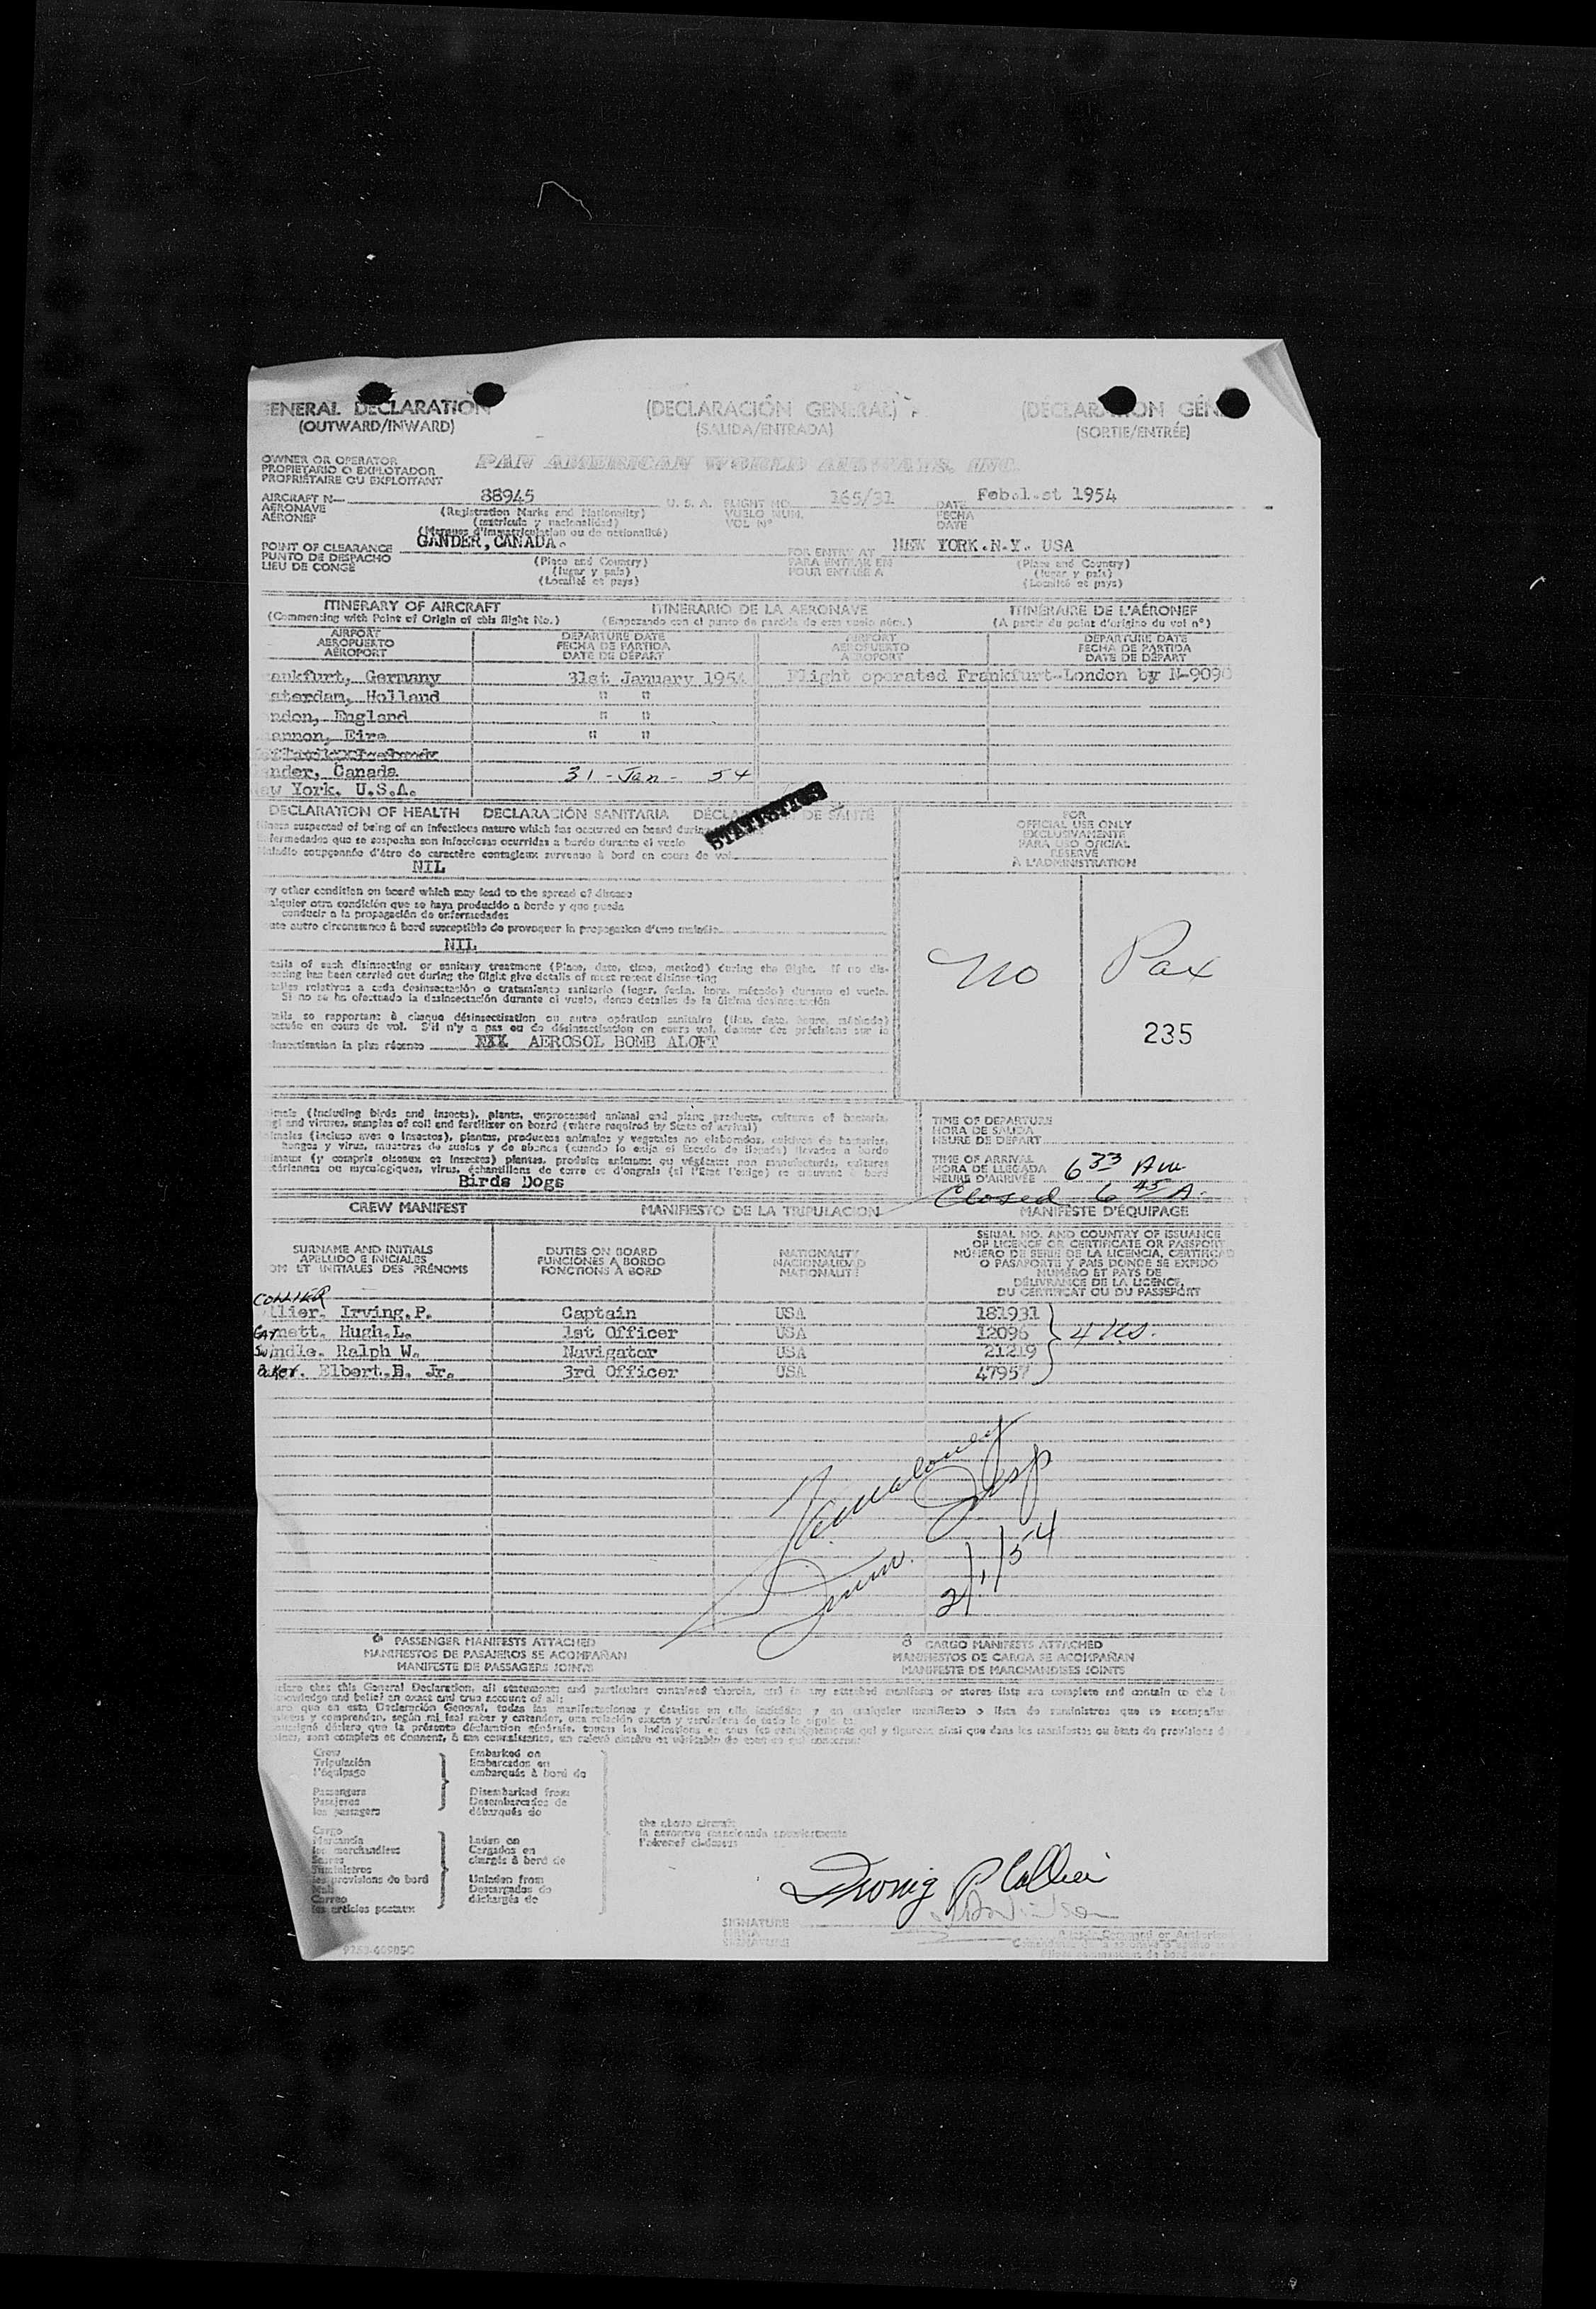 GENERAL DECLARATION (DECLARACIÓN GENERAL)
(OUTWARD/INWARD) (SALIDA/ENTRADA) (SORTIE/ENTRÉE)
OWNER OR OPERATOR PAN AMERICAN WORLD AIRWAYS, INC.
PROPIETARIO O EXPLOTADOR
PROPRIÉTAIRE OU EXPLOITANT
AIRCRAFT N 88945 U. S. A. FLIGHT NO. 165/31 DATE Feb.1.st 1954
AERONAVE (Registration Marks and Nationality) VUELO NUM. FECHA
AÉRONEF (matrícula y nacionalidad) VOL Nº DATE
(Marques d'immatriculation ou de nationalité)
POINT OF CLEARANCE GANDER, CANADA. FOR ENTRY AT NEW YORK.N.Y. USA
PUNTO DE DESPACHO (Place and Country) PARA ENTRAR EN (Place and Country)
LIEU DE CONGÉ (lugar y país) POUR ENTRÉE À (lugar y país)
(Localité et pays) (Localité et pays)
ITINERARY OF AIRCRAFT ITINERARIO DE LA AERONAVE ITINÉRAIRE DE L'AÉRONEF
(Commencing with Point of Origin of this flight No.) (Empezando con el punto de partida de este vuelo núm.) (A partir du point d'origine du vol nº)
AIRPORT DEPARTURE DATE AIRPORT DEPARTURE DATE
AEROPUERTO FECHA DE PARTIDA AEROPUERTO FECHA DE PARTIDA
AÉROPORT DATE DE DÉPART AÉROPORT DATE DE DÉPART
ankfurt, Germany 31st January 1954 Flight operated Frankfurt-London by N-9090
sterdam, Holland " "
ndon, England " "
annon, Eire " "
nder, Canada 31 - Jan - 54
ew York. U.S.A.
DECLARATION OF HEALTH DECLARACIÓN SANITARIA DE SANTÉ
STATISTICS
FOR
OFFICIAL USE ONLY
EXCLUSIVAMENTE
PARA USO OFICIAL
RÉSERVÉ
À L'ADMINISTRATION
Illness suspected of being of an infectious nature which has occurred on board during
Enfermedades que se sospecha son infecciosas ocurridas a bordo durante el vuelo
Maladie soupçonnée d'être de caractère contagieux survenue à bord en cours de vol
NIL
ny other condition on board which may lead to the spread of disease
alquier otra condición que se haya producido a bordo y que pueda
conducir a la propagación de enfermedades
ute autre circonstance à bord susceptible de provoquer la propagation d'une maladie
NIL
No Pax
235
tails of each disinsecting or sanitary treatment (Place, date, time, method) during the flight. If no dis-
secting has been carried out during the flight give details of most recent disinsecting
talles relativos a cada desinsectación o tratamiento sanitario (lugar, fecha, hora, método) durante el vuelo.
Si no se ha efectuado la desinsectación durante el vuelo, dense detalles de la última desinsectación
tails se rapportant à chaque désinsectisation ou autre opération sanitaire (lieu, date, heure, méthode)
ectuée en cours de vol. S'il n'y a pas eu de désinsectisation en cours vol, donner des précisions sur la
sinsectisation la plus récente XXX AEROSOL BOMB ALOFT
imals (including birds and insects), plants, unprocessed animal and plant products, cultures of bacteria,
gi and viruses, samples of soil and fertilizer on board (where required by State of arrival)
imales (incluso aves e insectos), plantas, productos animales y vegetales no elaborados, cultivos de bacterias,
hongos y virus, muestras de suelos y de abonos (cuando lo exija el Estado de llegada) llevados a bordo
imaux (y compris oiseaux et insectes) plantes, produits animaux ou végétaux non manufacturés, cultures
ctériennes ou mycologiques, virus, échantillons de terre et d'engrais (si l'État l'exige) se trouvant à bord
Birds Dogs
TIME OF DEPARTURE
HORA DE SALIDA
HEURE DE DÉPART
TIME OF ARRIVAL
HORA DE LLEGADA 6 33 AM
HEURE D'ARRIVÉE
Closed 6 45 A.
CREW MANIFEST MANIFIESTO DE LA TRIPULACION MANIFESTE D'ÉQUIPAGE
SURNAME AND INITIALS DUTIES ON BOARD NATIONALITY SERIAL NO. AND COUNTRY OF ISSUANCE
APELLIDO E INICIALES FUNCIONES A BORDO NACIONALIDAD OF LICENCE OR CERTIFICATE OR PASSPORT
OM ET INITIALES DES PRÉNOMS FONCTIONS À BORD NATIONALITÉ NÚMERO DE SERIE DE LA LICENCIA, CERTIFICAD
O PASAPORTE Y PAÍS DONDE SE EXPIDO
NUMÉRO ET PAYS DE
DÉLIVRANCE DE LA LICENCE,
DU CERTIFICAT OU DU PASSEPORT
COLLIER
llier. Irving.P. Captain USA 181931
nett. Hugh.L. 1st Officer USA 12096
Swindle. Ralph W. Navigator USA 21219
Baker. Elbert.B. Jr. 3rd Officer USA 47957
2/1/54
PASSENGER MANIFESTS ATTACHED CARGO MANIFESTS ATTACHED
MANIFIESTOS DE PASAJEROS SE ACOMPAÑAN MANIFIESTOS DE CARGA SE ACOMPAÑAN
MANIFESTE DE PASSAGERS JOINTS MANIFESTE DE MARCHANDISES JOINTS
clare that this General Declaration, all statements and particulars contained therein, and in any attached manifests or stores lists are complete and contain to the
knowledge and belief an exact and true account of all:
Crew Embarked on
Tripulación Embarcados en
l'équipage embarqués à bord de
Passengers Disembarked from
Pasajeros Desembarcados de
les passagers débarqués de
Cargo the above aircraft
Mercancía Laden on la aeronave mencionada anteriormente
les marchandises Cargados en l'aéronef ci-dessus
Stores chargés à bord de
Suministros
les provisions de bord Unladen from
Mail Descargados de
Correo déchargés de
les articles postaux
Irving P Collier
SIGNATURE
FIRMA
SIGNATURE